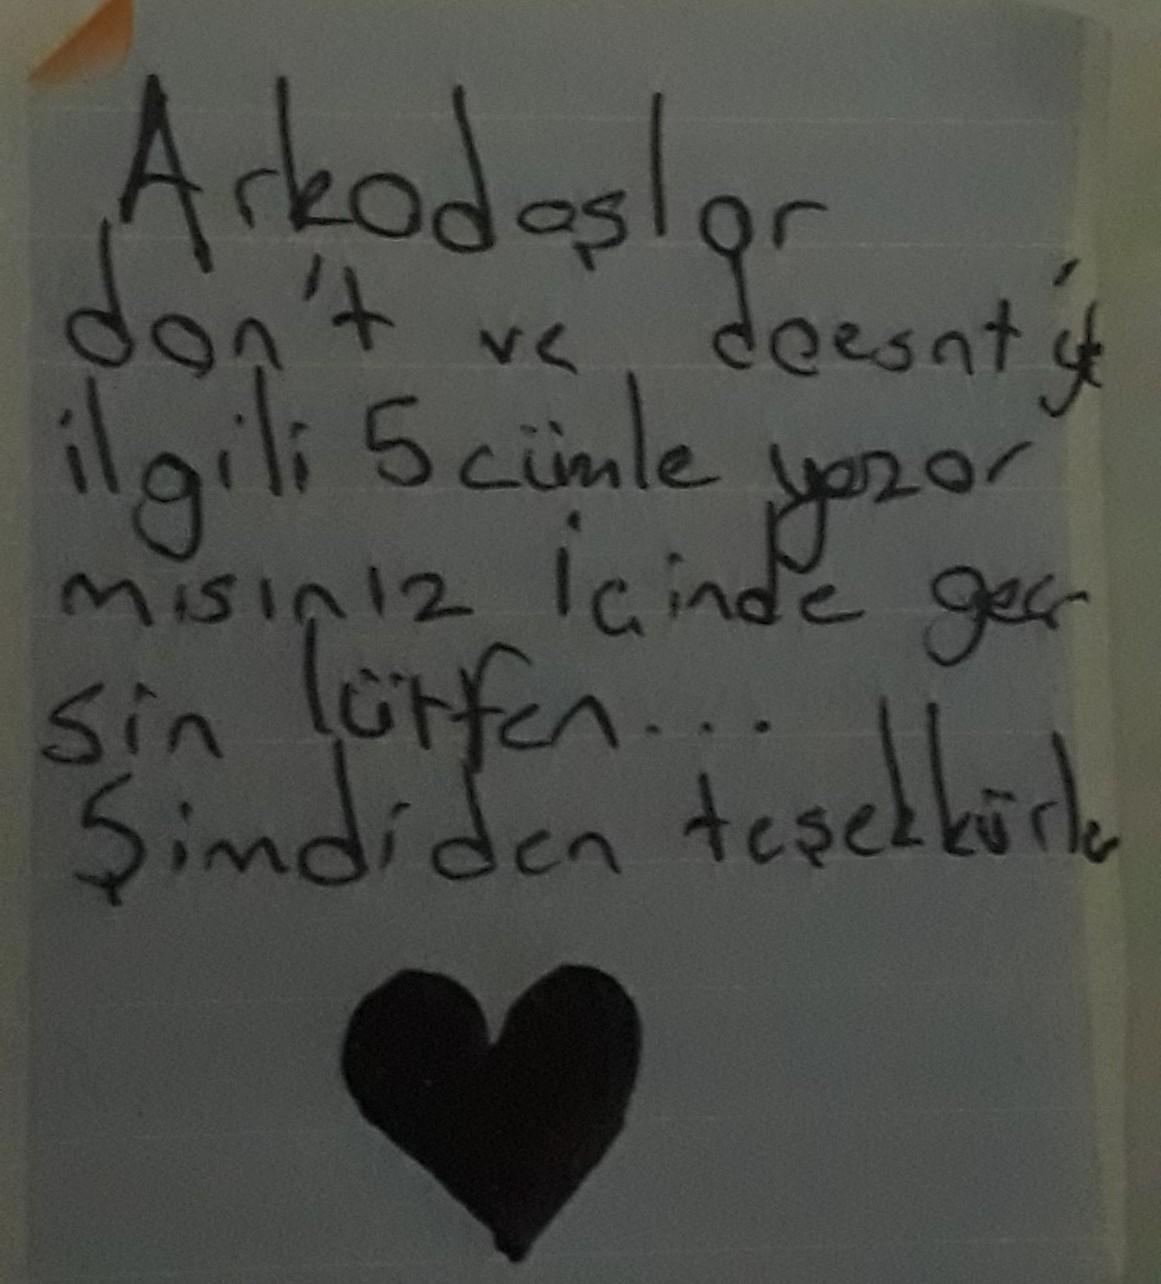 Arkadaşlar
don't ve doesnt ile
ilgili 5 cümle yazar
mısınız İçinde geç
sin lütfen....
Şimdiden teşekkürler